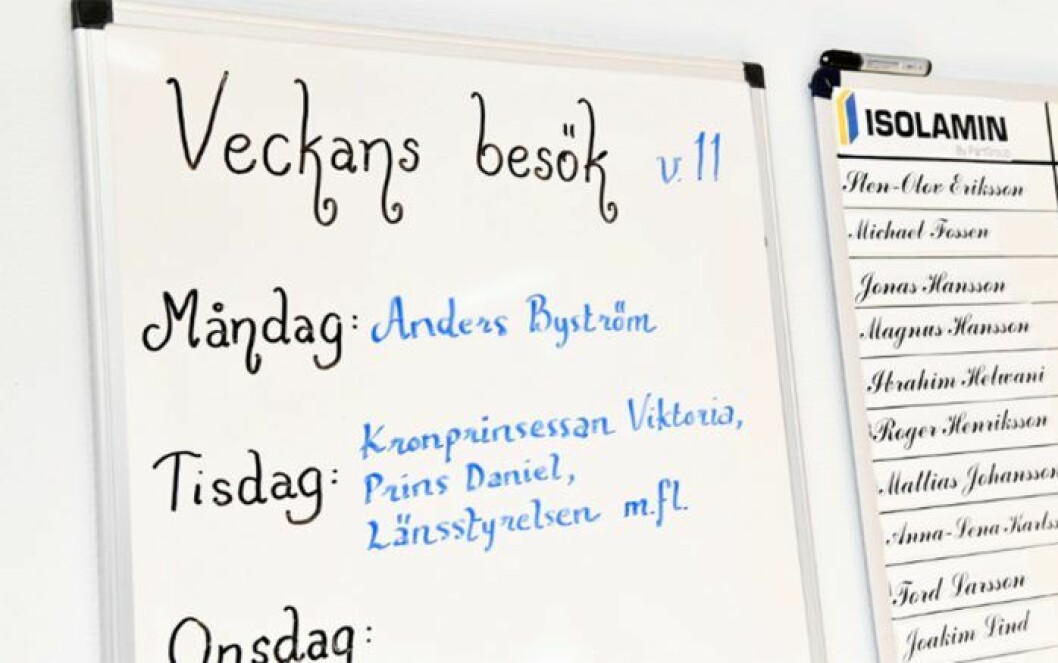 Veckans besök v.11
Måndag: Anders Byström
Tisdag: Kronprinsessan Viktoria,
Prins Daniel,
Länsstyrelsen m.fl.
Onsdag:
ISOLAMIN
By PartGroup
Sten-Olov Eriksson
Michael Fossen
Jonas Hansson
Magnus Hansson
Ibrahim Helwani
Roger Henriksson
Mattias Johansson
Anna-Lena Karlss
Tord Larsson
Joakim Lind